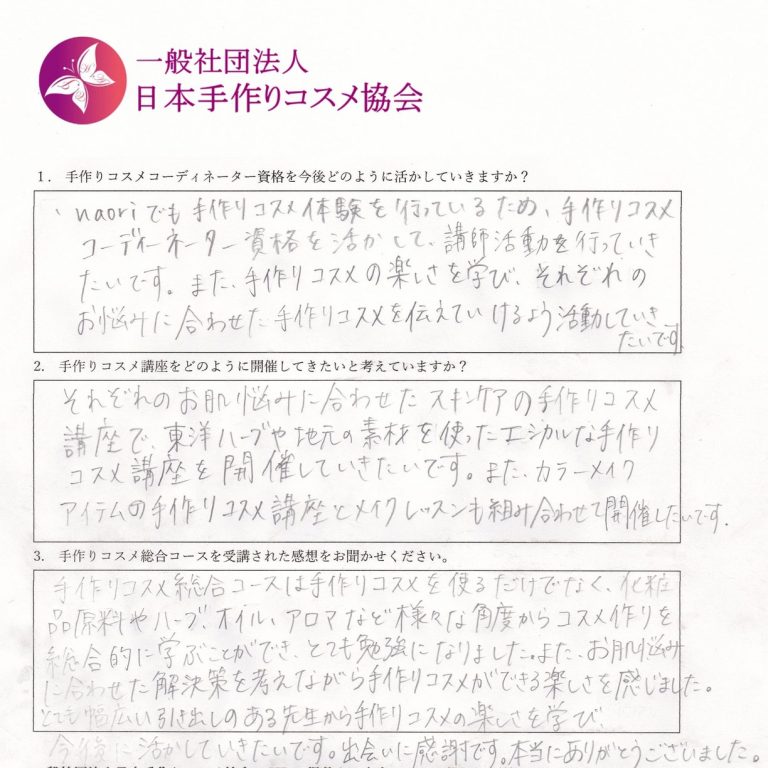 一般社団法人
日本手作りコスメ協会
1. 手作りコスメコーディネーター資格を今後どのように活かしていきますか？
、naoriでも手作りコスメ体験を行っているため、手作りコスメ
コーディーネーター資格を活かして、講師活動を行っていき
たいです。また、手作りコスメの楽しさを学び、それぞれの
お悩みに合わせた手作りコスメを伝えていけるよう活動していき
たいです。
2. 手作りコスメ講座をどのように開催してきたいと考えていますか？
それぞれのお肌悩みに合わせたスキンケアの手作りコスメ
講座で、東洋ハーブや地元の素材を使ったエシカルな手作り
コスメ講座を開催していきたいです。また、カラーメイク
アイテムの手作りコスメ講座とメイクレッスンも組み合わせて開催したいです.
3. 手作りコスメ総合コースを受講された感想をお聞かせください。
手作りコスメ総合コースは手作りコスメを使るだけでなく、化粧
品原料やハーブ、オイル、アロマなど様々な角度からコスメ作りを
総合的に学ぶことができ、とても勉強になりました。また、お肌悩み
に合わせた解決策を考えながら手作りコスメができる楽しさを感じました。
とても幅広い引き出しのある先生から手作りコスメの楽しさを学び、
今後に活かしていきたいです。出会いに感謝です。本当にありがとうございました。